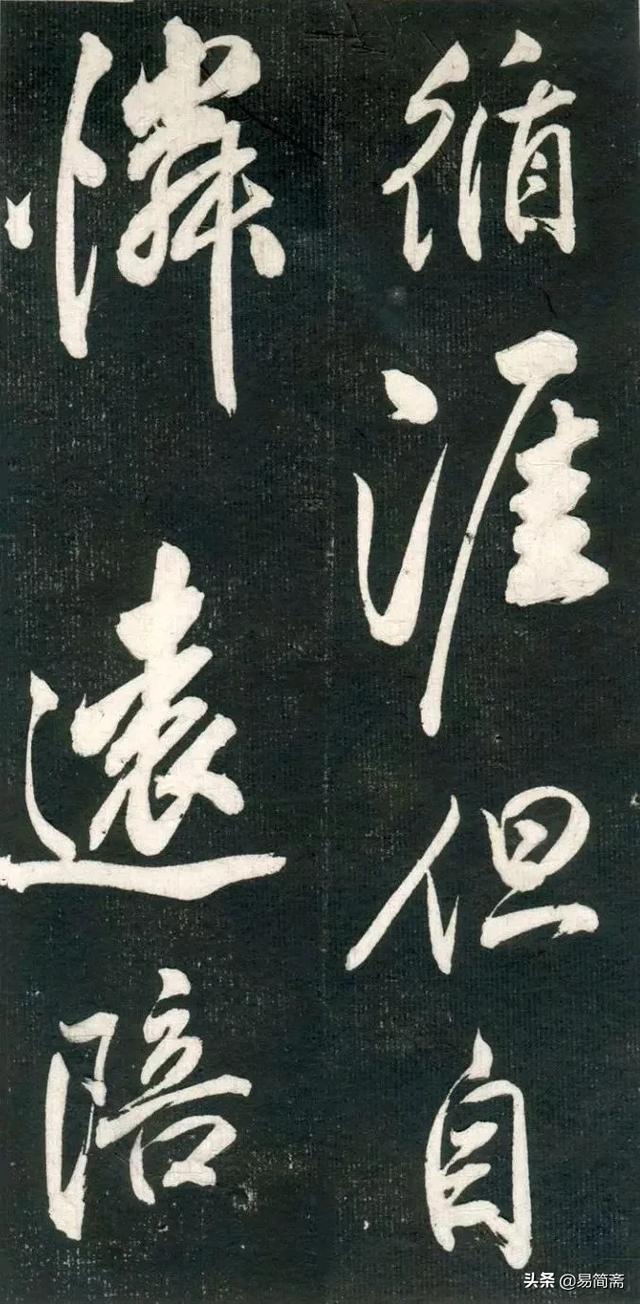 循涯但自
憐遠陪
头条 @易简斋